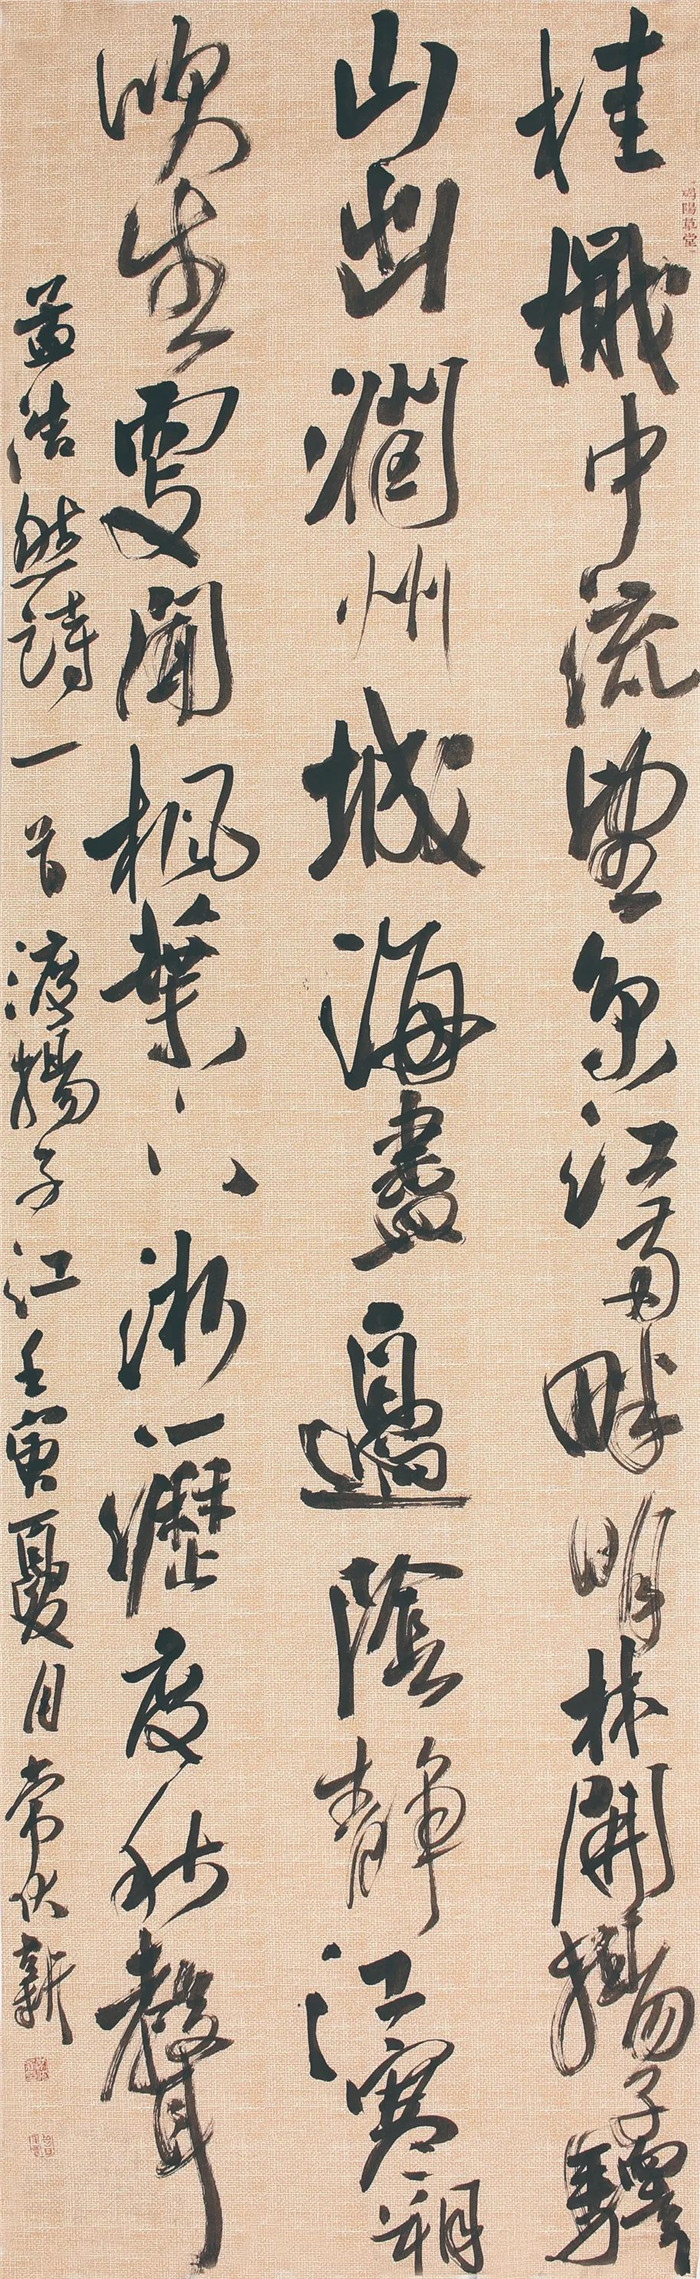 桂檝中流望京江兩畔明林開揚子驛
山出潤州城海盡邊陰靜江寒朔
吹生更聞楓葉下淅瀝度秋聲
孟浩然詩一首渡揚子江壬寅夏月常伏新
陽草堂